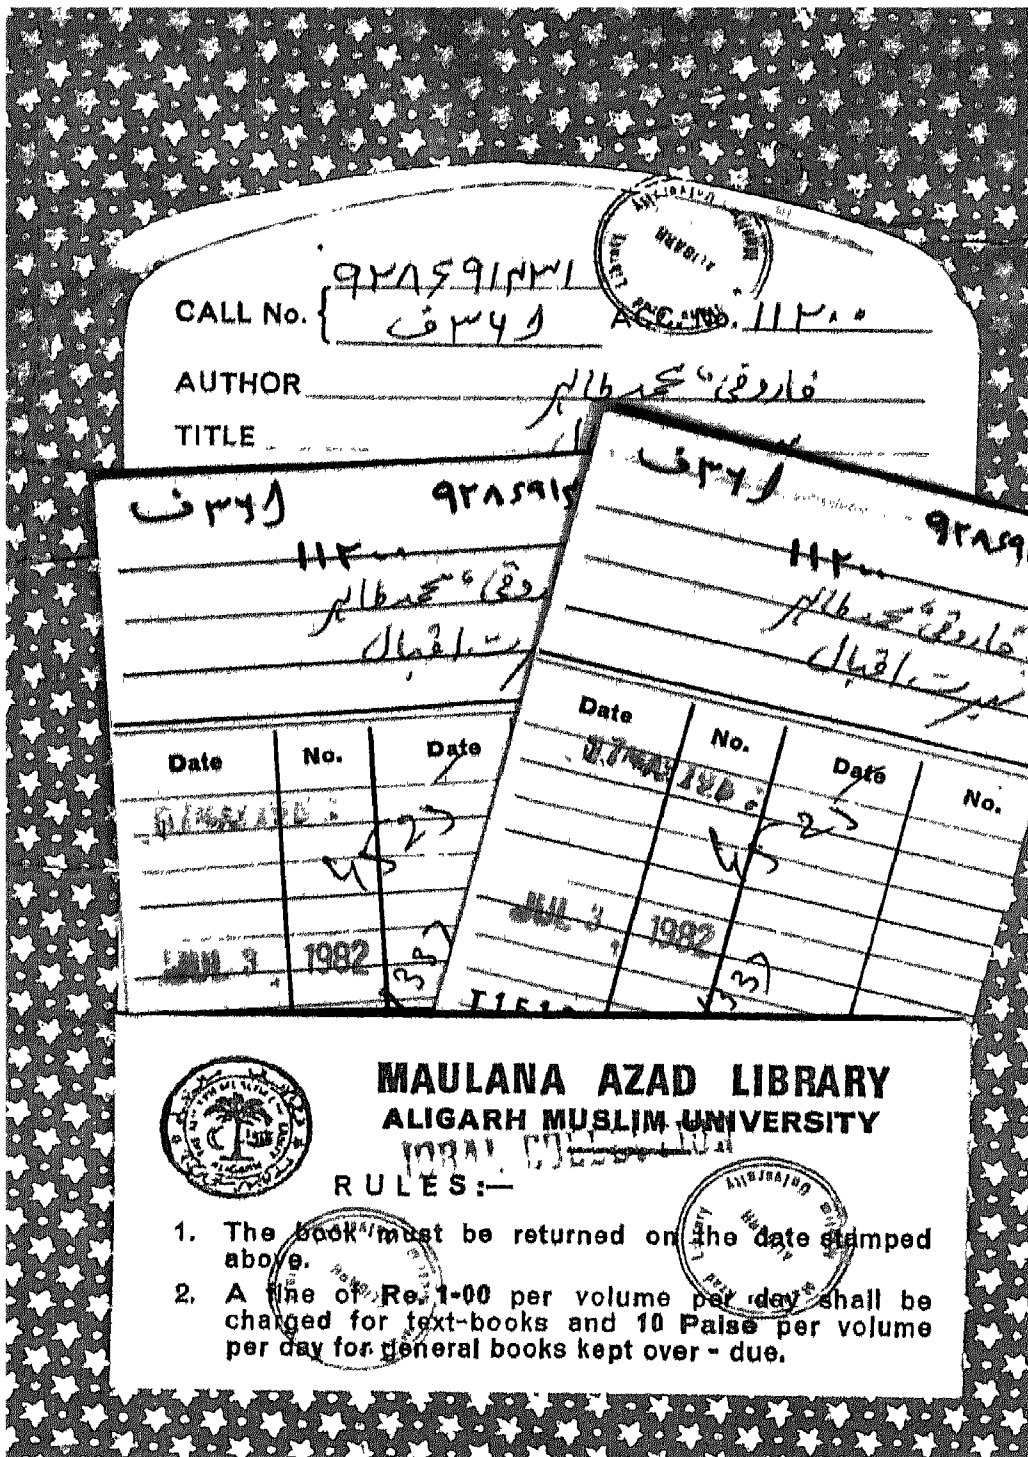 CALL No. { ۹۲۸ء۹۱۴۳۱
ف۳۶۱
ACC. No. ۱۱۲۰۰
AUTHOR فاروقی، محمد طاہر
TITLE
ف۳۶۱ ۹۲۸ء۹۱۴
۱۱۲۰۰
محمد طاہر
اقبال
Date No. Date
JUL 3 1982
ف۳۶۱ ۹۲۸ء۹
۱۱۲۰۰
فاروقی، محمد طاہر
سیرت اقبال
Date No. Date No.
JUL 3 1982
MAULANA AZAD LIBRARY
ALIGARH MUSLIM UNIVERSITY
IQBAL COLLECTION
RULES:—
1. The book must be returned on the date stamped
above.
2. A fine of Re. 1-00 per volume per day shall be
charged for text-books and 10 Paise per volume
per day for general books kept over - due.